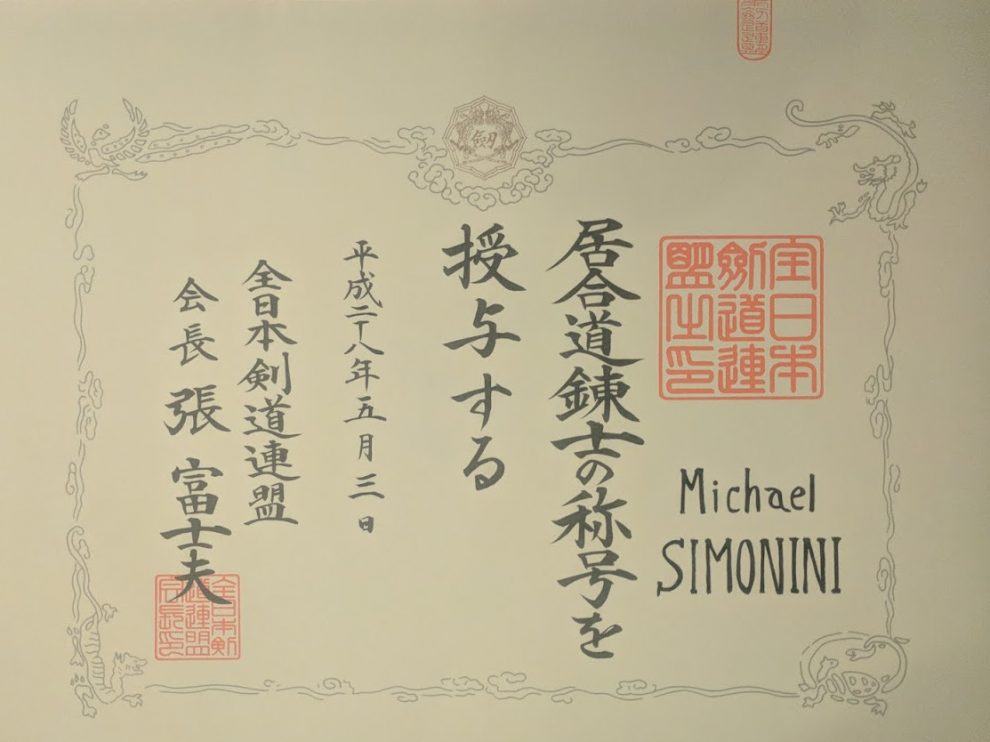 全日本
劍道連
盟之印
Michael
SIMONINI
居合道錬士の称号を
授与する
平成二十八年五月三日
全日本剣道連盟
会長 張 富士夫
全日本剣
道連盟
会長印